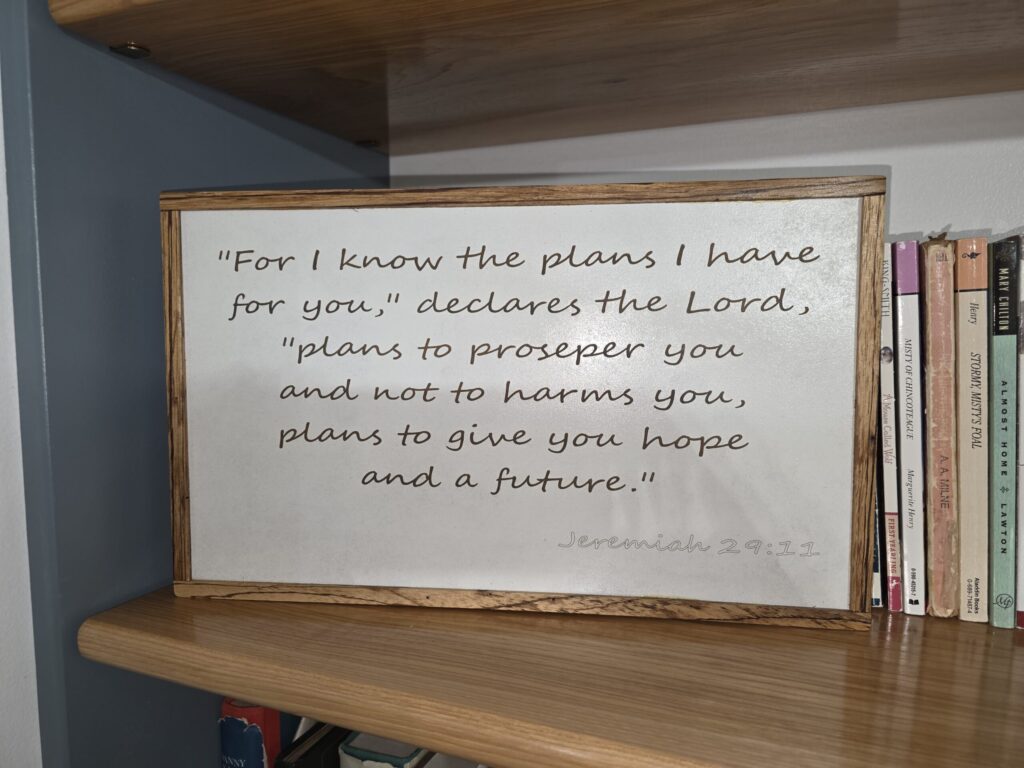 "For I know the plans I have
for you," declares the Lord,
"plans to proseper you
and not to harms you,
plans to give you hope
and a future."
Jeremiah 29:11
KING-SMITH
A Mouse Called Wolf
FIRST YEARLING
MISTY OF CHINCOTEAGUE
Marguerite Henry
A. A. MILNE
Henry
STORMY, MISTY'S FOAL
Aladdin Books
0-689-71487-4
MARY CHILTON
ALMOST HOME
LAWTON